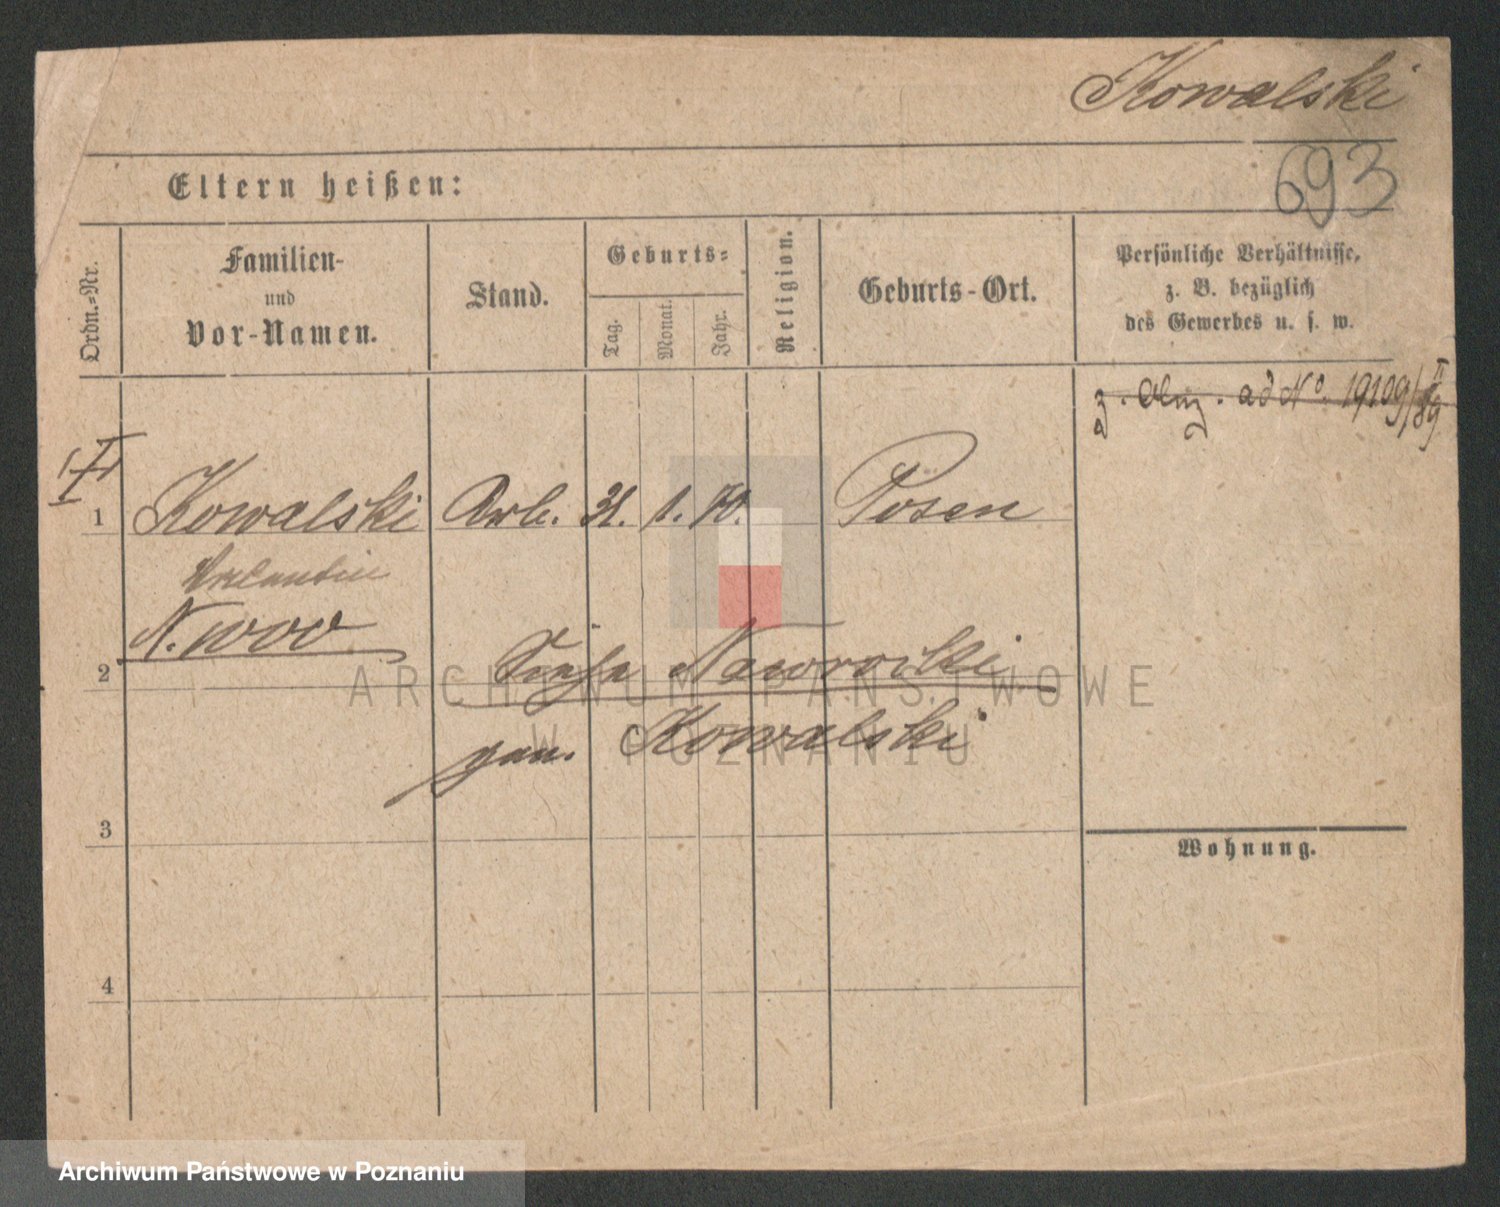 Kowalski
693
Eltern heißen:
Ordn.=Nr.
Familien-
und
Vor-Namen.
Stand.
Geburts=
Tag.
Monat.
Jahr.
Religion.
Geburts-Ort.
Persönliche Verhältnisse,
z. B. bezüglich
des Gewerbes u. s. w.
z. ad No. 19109/
1 Kowalski Arb. 31. 1. 70. Posen
Valentin
2 Siehe Nawrocki
gen. Kowalski
3
Wohnung.
4
ARCHIWUM PAŃSTWOWE
W POZNANIU
Archiwum Państwowe w Poznaniu